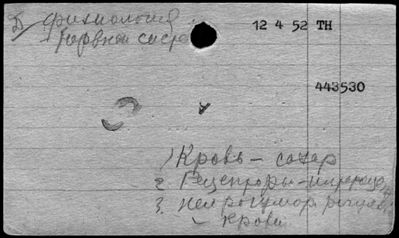 Физиология
нервной систе
12 4 52 TH
443530
1) Кровь - сахар
2. Рецепторы-интероце
3. Нейрогумор. регуляц
крови